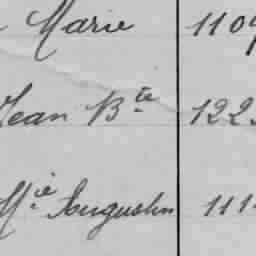 Marie 110
Jean Bte 122
Mie Augustin 111